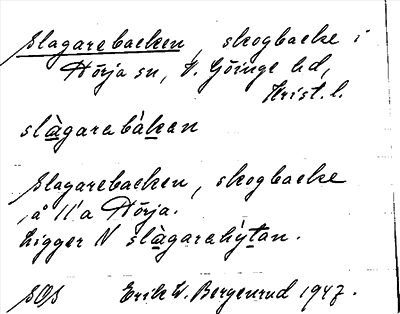 Slagarebacken, skogbacke i
Hörja sn, V. Göinge hd,
Krist. l.
slàgarebákan
Slagarebacken, skogbacke
å 11a Hörja.
Ligger N slàgarehýtan.
SOS Erik W. Bergenrud 1947.